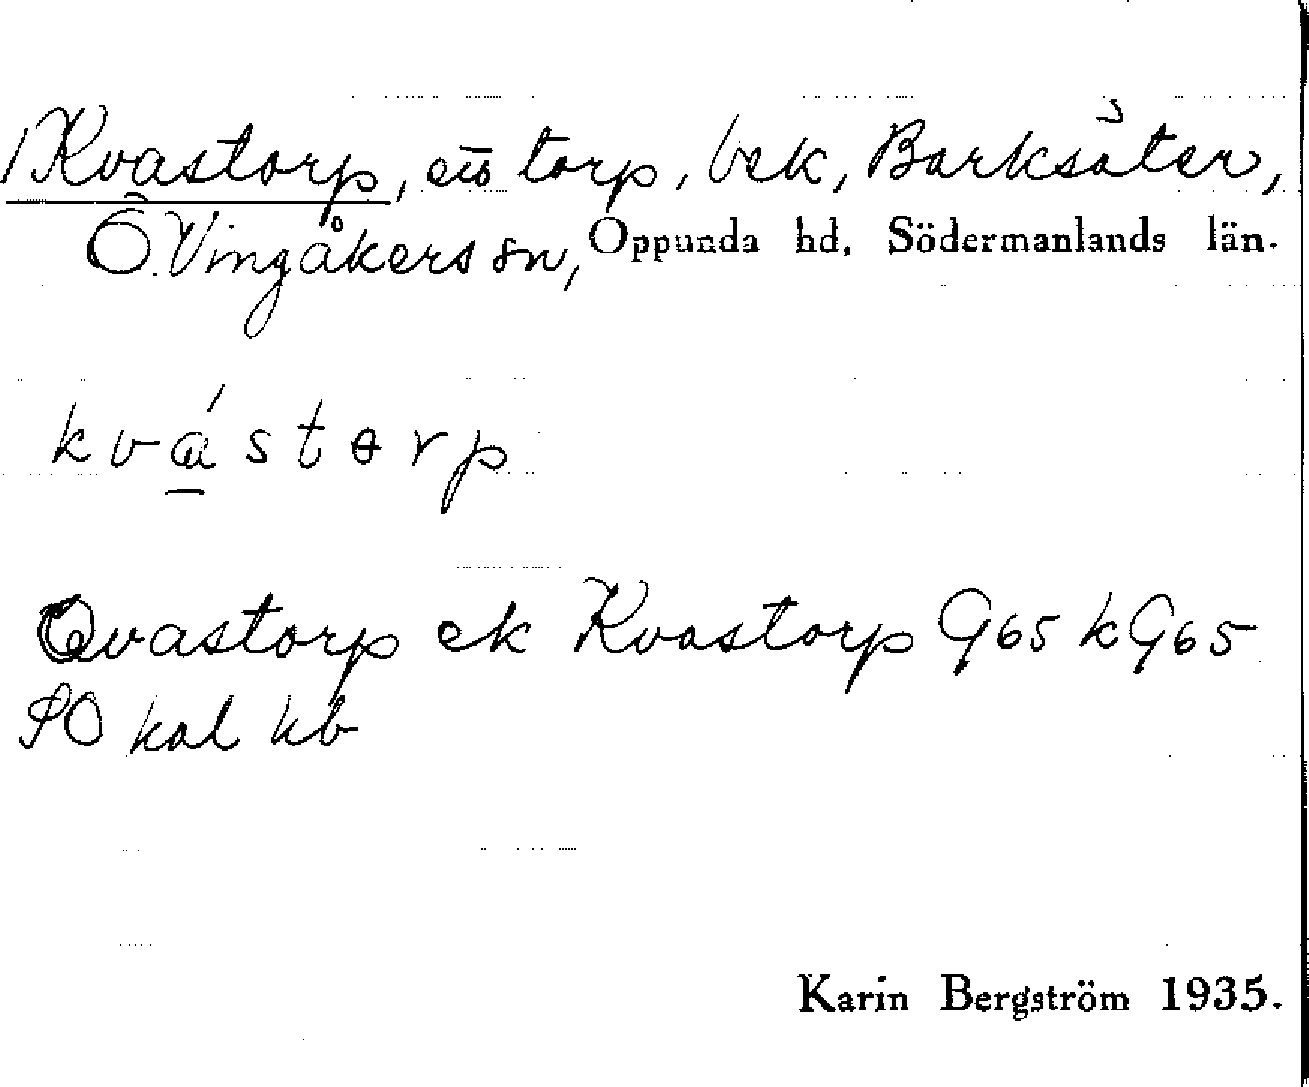 1) Kvastorp, ett torp, bek, Barksäter,
Ö. Vingåkers sn, Oppunda hd, Södermanlands län.
kvástɵrp
Qvastorp ek Kvastorp G65 kG65
SO kal kb
Karin Bergström 1935.